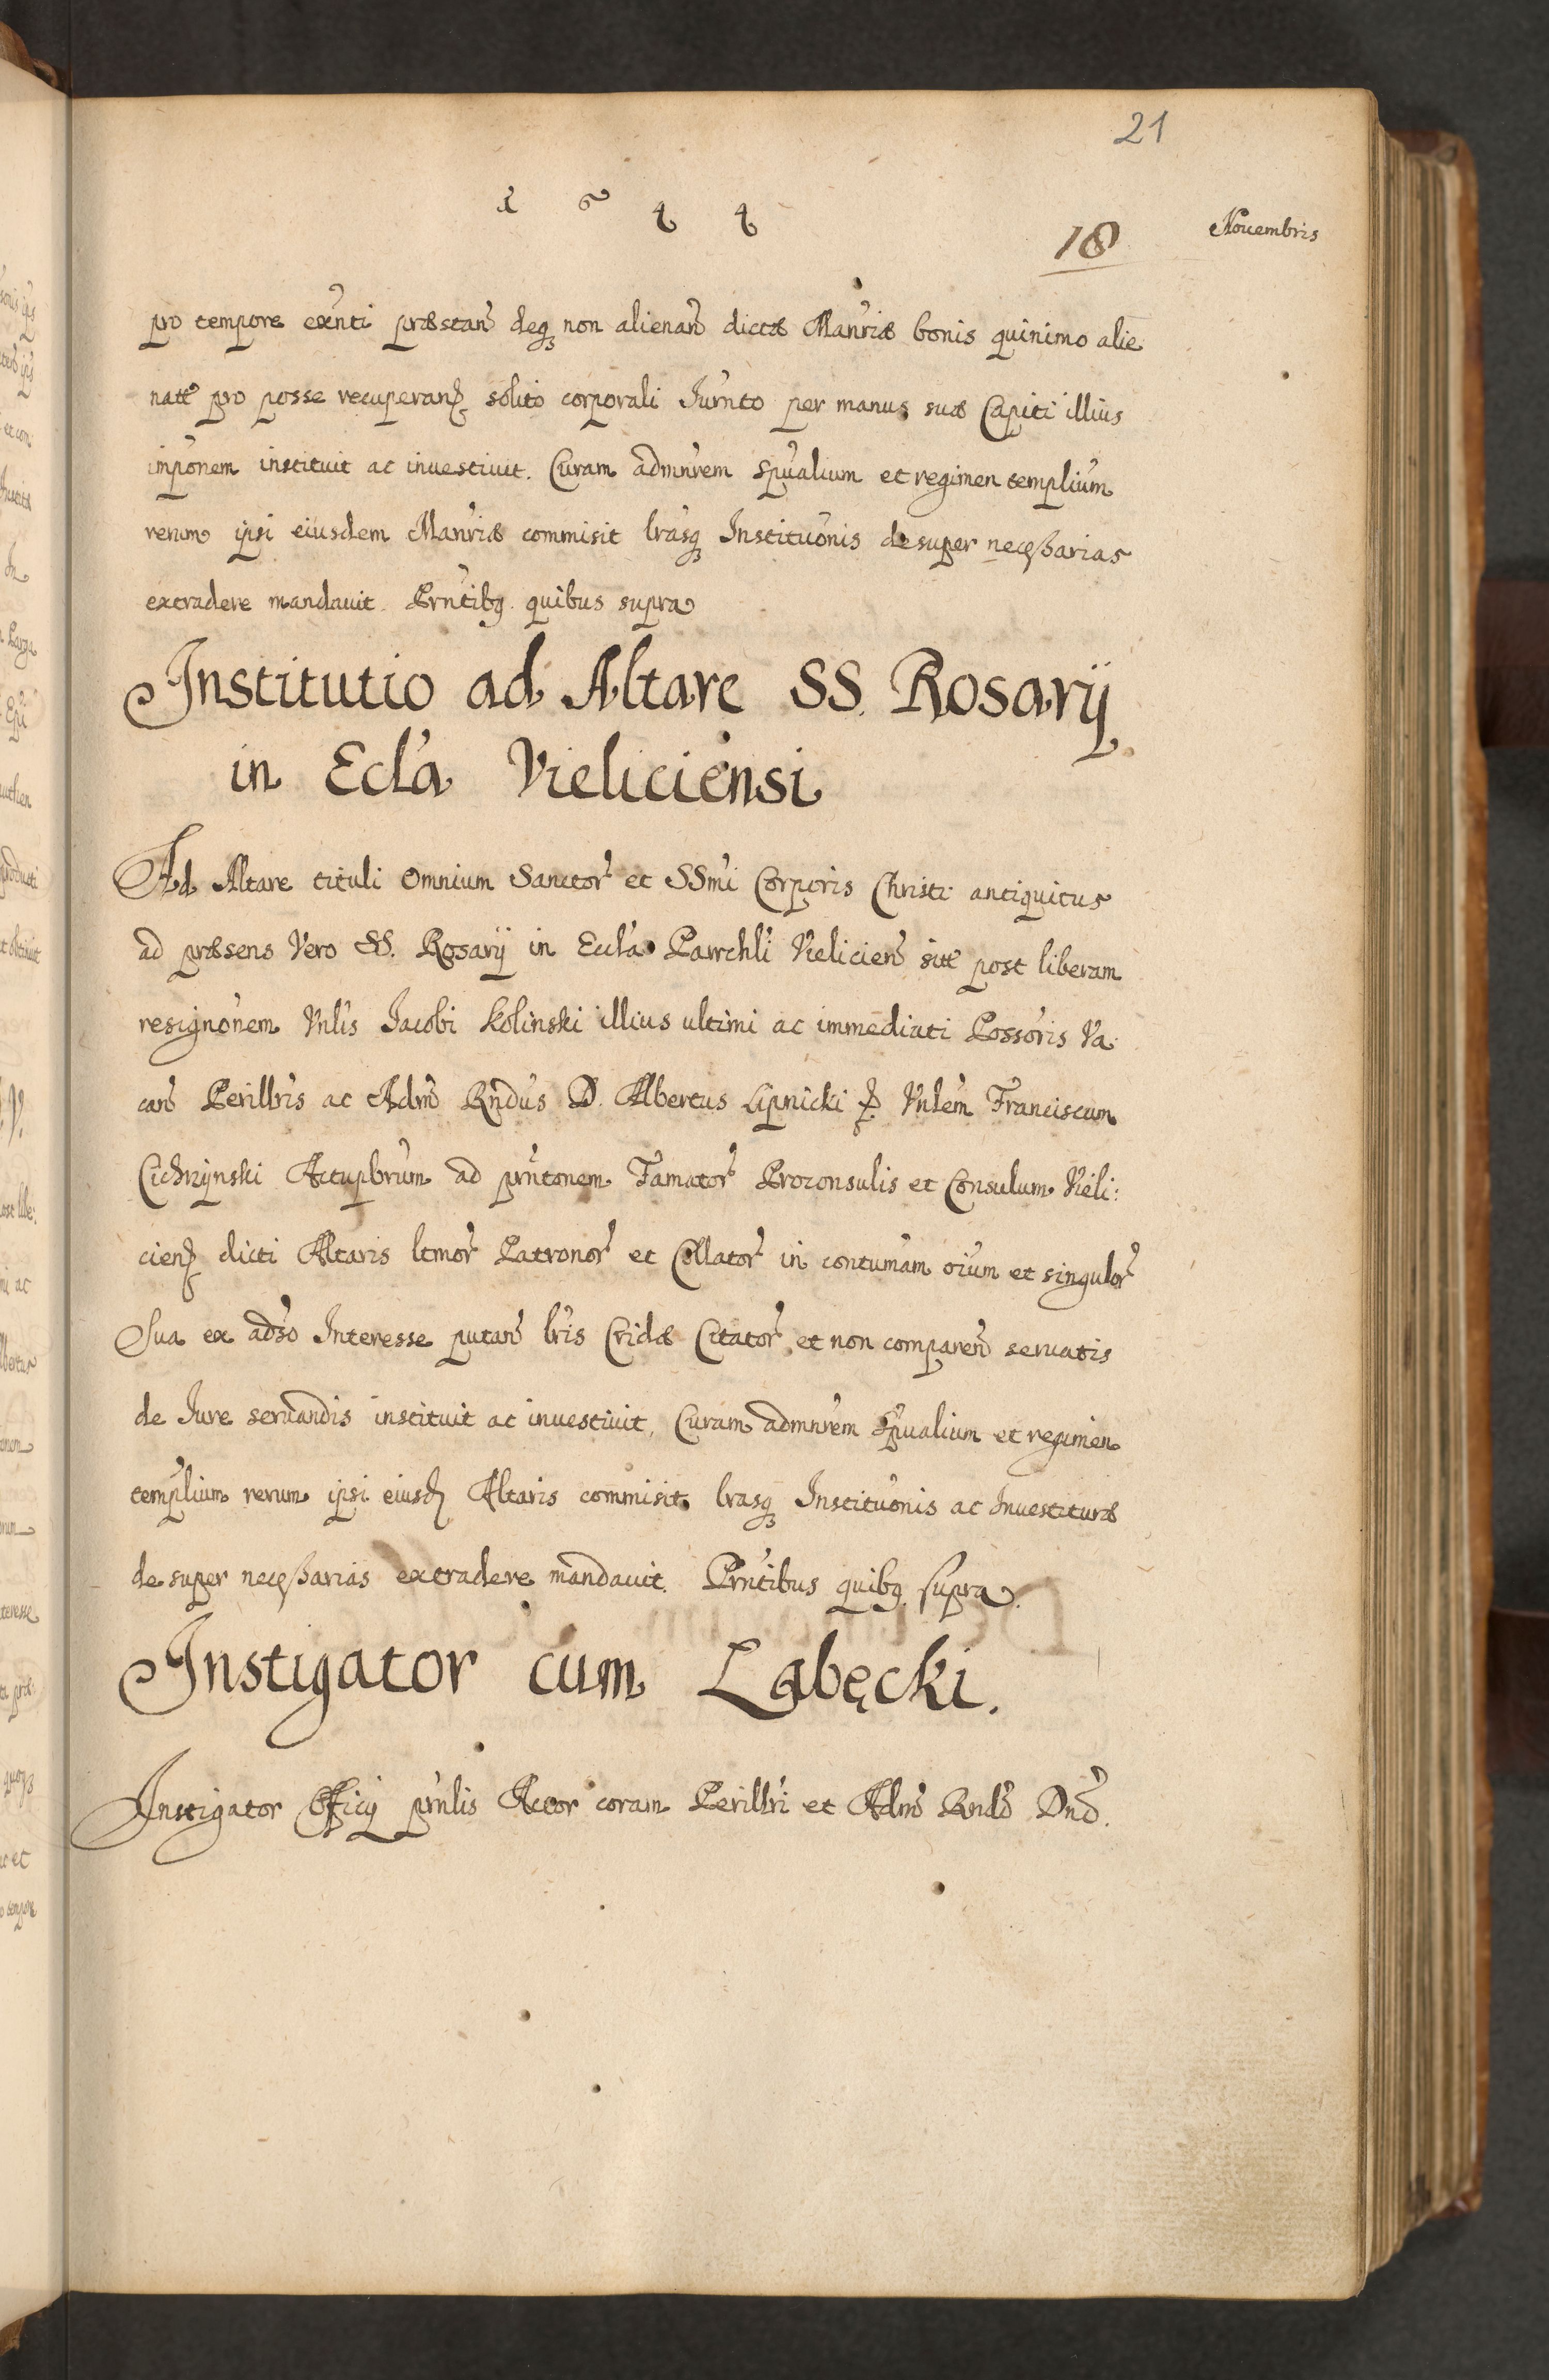 21
1 6 4 4
18 Nouembris
pro tempore exñti præstañ deq3 non alienañ dictæ Mañriæ bonis quinimo alie
natĩ pro posse recuperand solito corporali Jurñto per manus suæ Capiti illius
imponem instituit ac inuestiuit. Curam admñrem Spũalium et regimen templium
rerum ipsi eiusdem Mañriæ commisit lrasq3 Instituõnis desuper neceßarias
extradere mandauit. Prñtibq quibus supra
Institutio ad Altare SS. Rosarij
in Ecla Vieliciensi
Ad Altare tituli Omnium Sanctor et SSmi Corporis Christi antiquitus
ad præsens Vero SS. Rosarij in Eccla Parrchli Vielicieñ sitĩ post liberam
resignonem Vnlis Jacobi Kolinski illius ultimi ac immediati Possoris Va
cañ Perillris ac Adm Rndus D. Albertus Lipnicki Vnlem Franciscum
Cichrzynski Actupbrum ad prñtonem Famator Proconsulis et Consulum Vieli:
cien dicti Altaris ltmor Patronor et Collator in contumam oium et singulor
Sua ex adso Interesse putañ lris Cridæ Citator et non compareñ seruatis
de Jure seruandis instituit ac inuestiuit, Curam admñrem Spũalium et regimen
templium rerum ipsi eiusd Altaris commisit lrasq3 Instituõnis ac Inuestituræ
de super neceßarias extradere mandauit. Prñtibus quibq supra.
Instigator cum Łabęcki.
Instigator Officij prñlis Actor coram Perillri et Adm Rndo Dno.